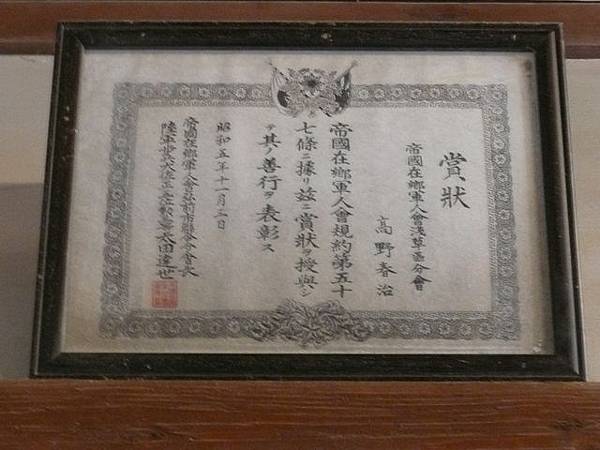 賞狀
帝國在鄉軍人會浅草區分會
高野春治
帝國在鄉軍人會規約第五十
七條ニ據リ茲ニ賞狀ヲ授與シ
テ其ノ善行ヲ表彰ス
昭和五年十一月三日
帝國在鄉軍人會
陸軍 太田達世